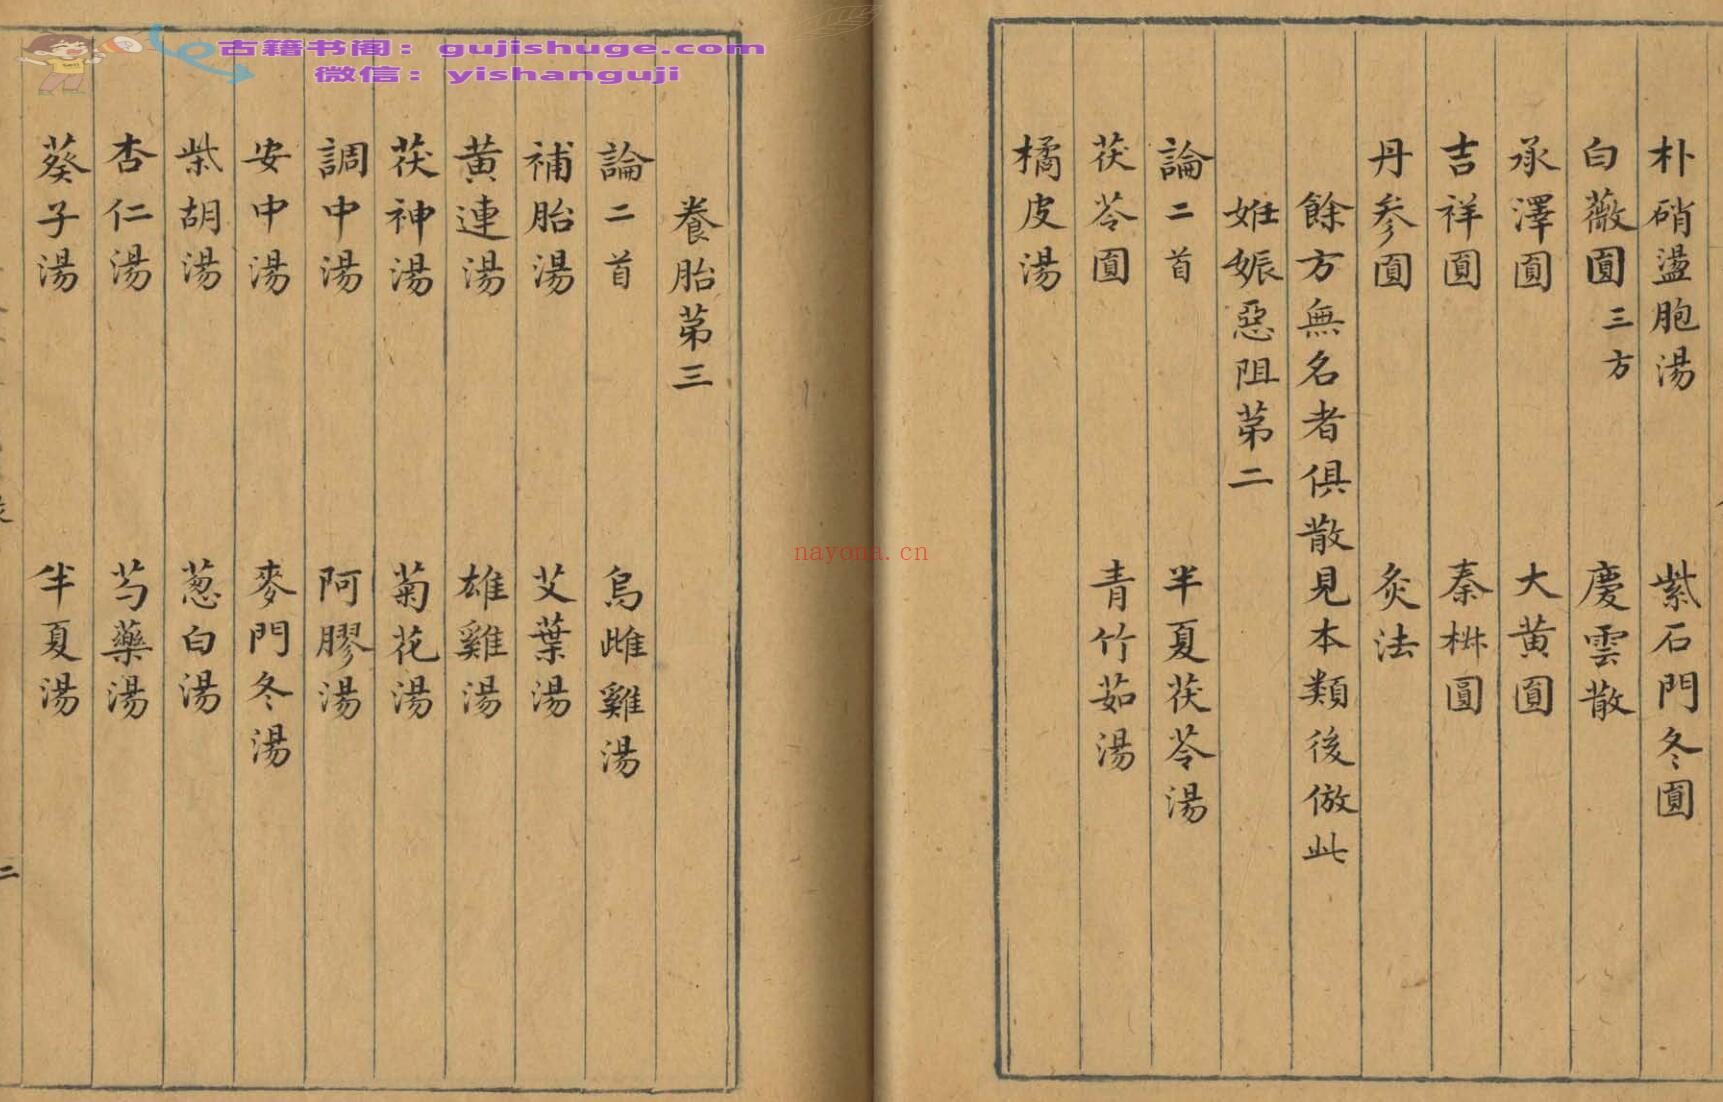 古籍书阁：gujishuge.com
微信：yishanguji
朴硝盪胞湯　紫石門冬圓
白薇圓三方　慶雲散
承澤圓　大黄圓
吉祥圓　秦椒圓
丹參圓　灸法
餘方無名者俱散見本類後倣此
妊娠惡阻苐二
論二首　半夏茯苓湯
茯苓圓　青竹茹湯
橘皮湯
養胎苐三
論二首　烏雌雞湯
補胎湯　艾葉湯
黄連湯　雄雞湯
茯神湯　菊花湯
調中湯　阿膠湯
安中湯　麥門冬湯
柴胡湯　葱白湯
杏仁湯　芍藥湯
葵子湯　半夏湯
二
nayona.cn